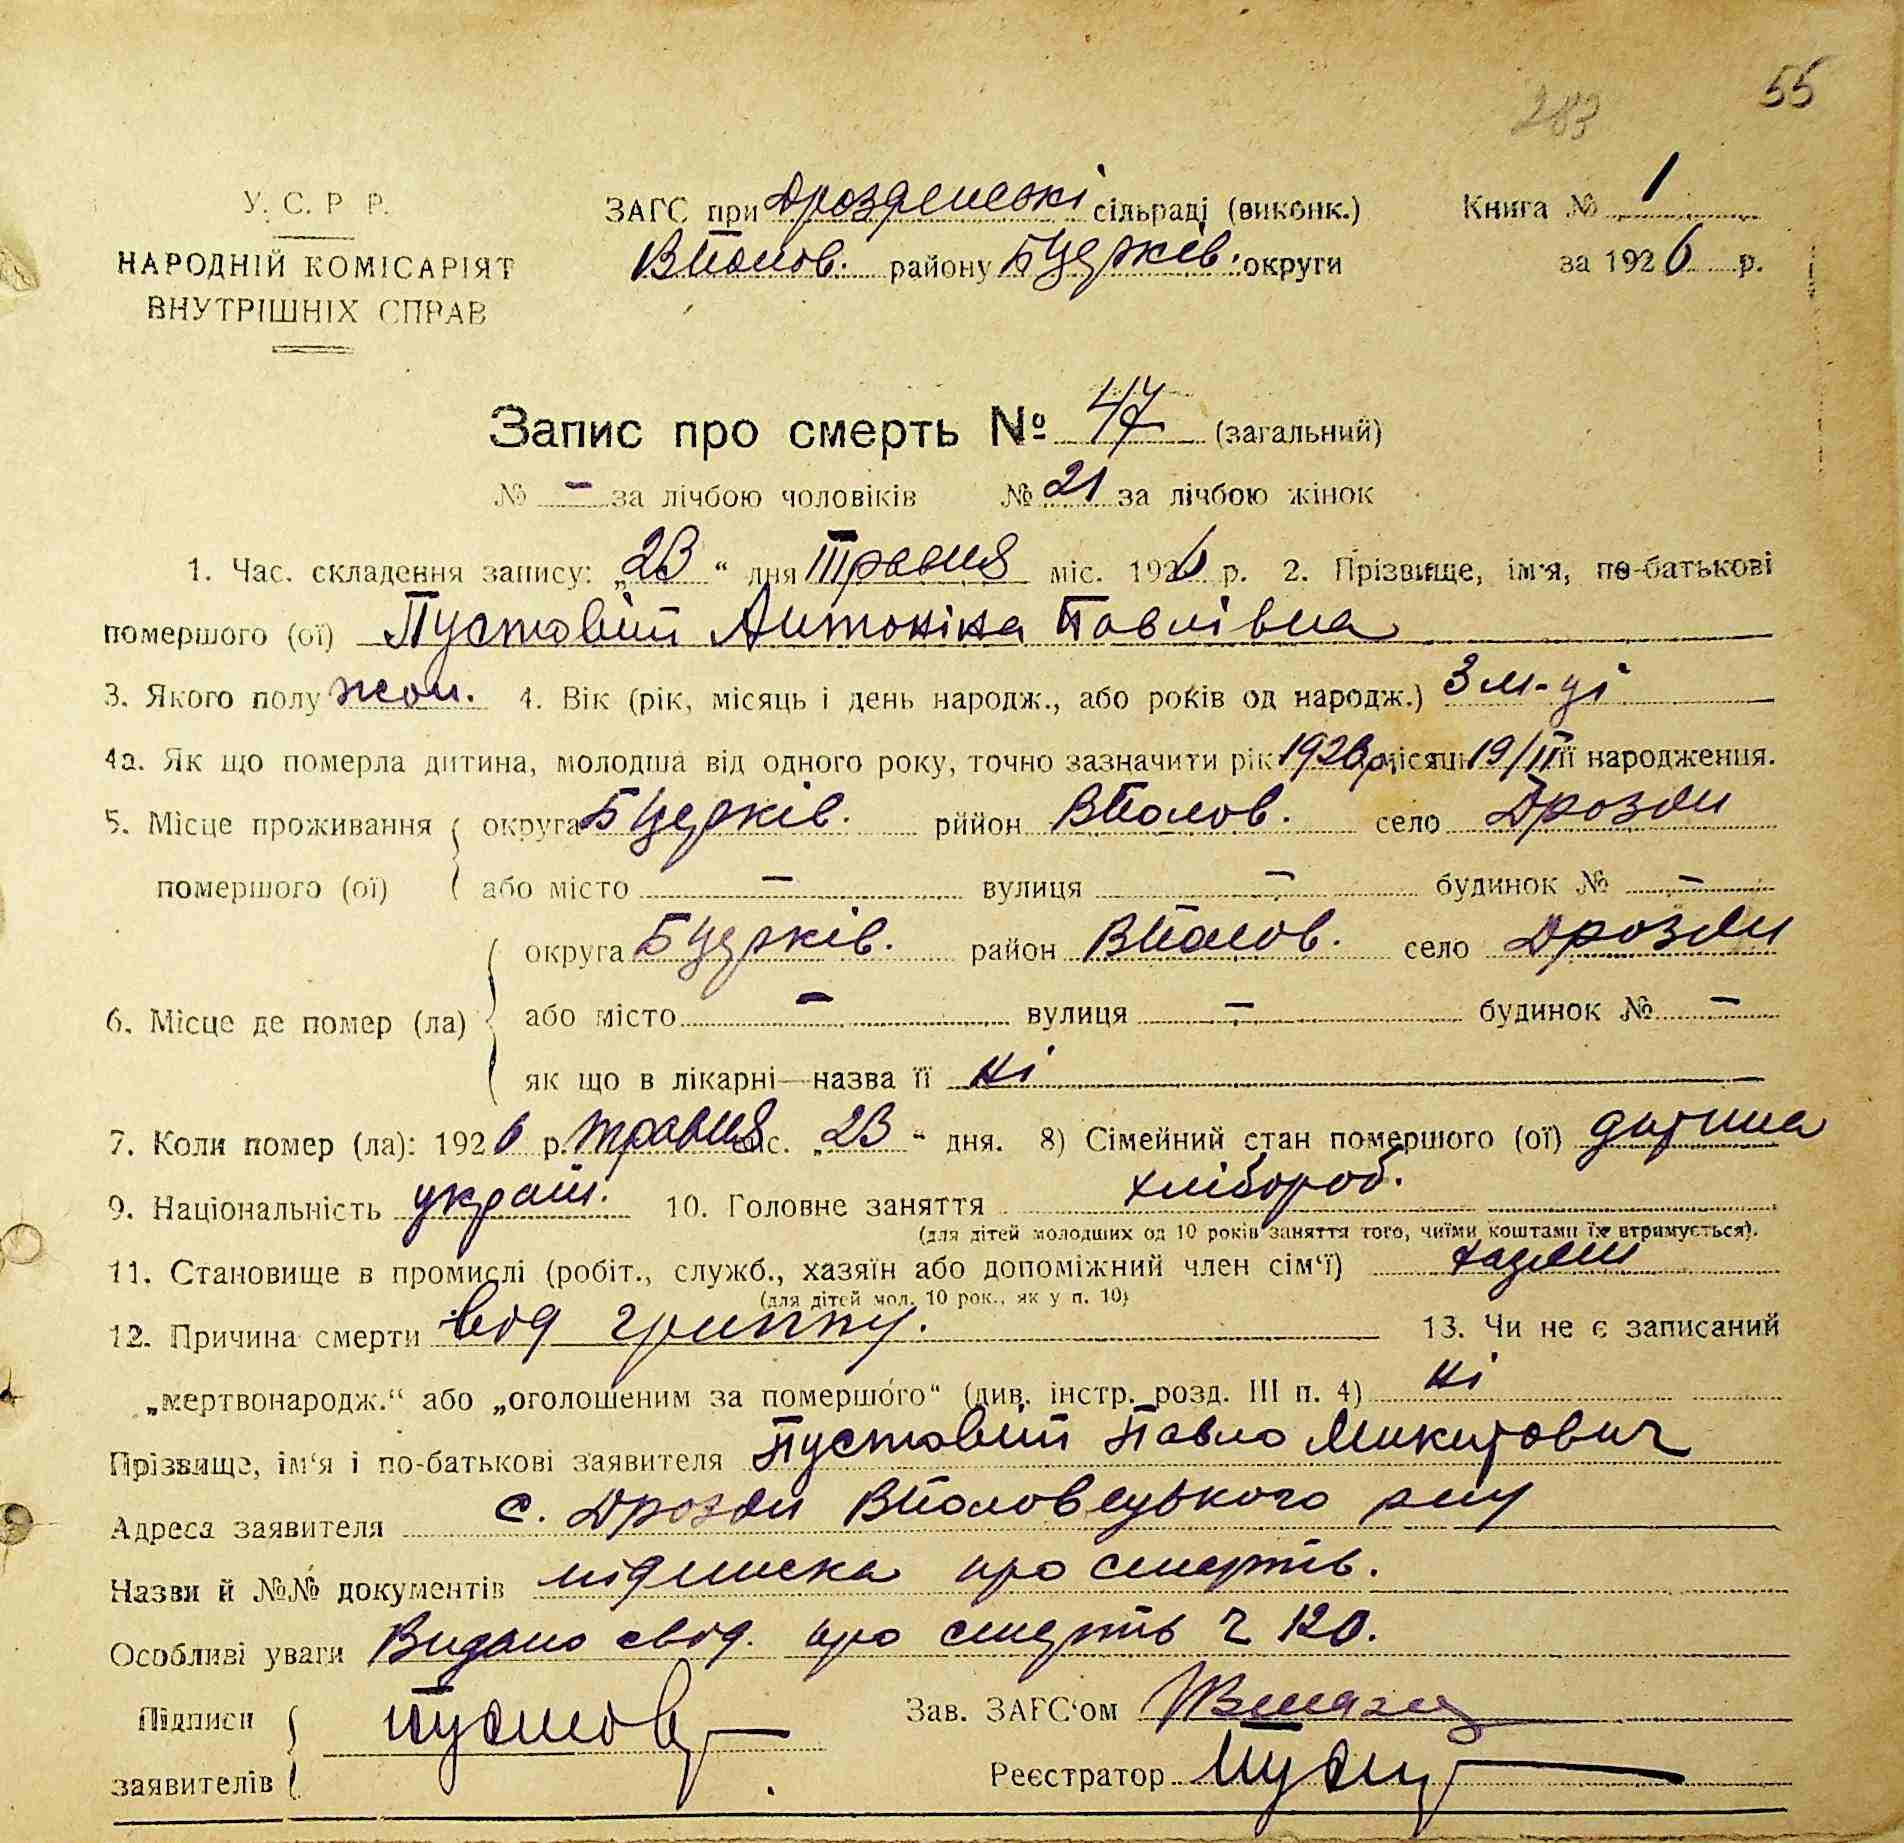 55
283
У. С. Р. Р.
НАРОДНІЙ КОМІСАРІЯТ
ВНУТРІШНІХ СПРАВ
ЗАГС при Дрозденські сільраді (виконк.)
ВПолов. району БЦерків. округи
Книга № 1
за 1926 р.
Запис про смерть № 47 (загальний)
№ – за лічбою чоловіків № 21 за лічбою жінок
1. Час. складення запису: „23“ дня Травня міс. 1926 р. 2. Прізвище, ім'я, по-батькові
помершого (ої) Пустовій Антоніна Павлівна
3. Якого полу жон. 4. Вік (рік, місяць і день народж., або років од народж.) 3 м-ці
4а. Як що померла дитина, молодша від одного року, точно зазначити рік 1926 р. місяць 19/II її народження.
5. Місце проживання округа БЦерків. рййон ВПолов. село Дрозди
помершого (ої) або місто – вулиця – будинок № –
округа БЦерків. район ВПолов. село Дрозди
6. Місце де помер (ла) або місто – вулиця – будинок № –
як що в лікарні—назва її ні
7. Коли помер (ла): 1926 р. травня міс. „23“ дня. 8) Сімейний стан помершого (ої) дитина
9. Національність україн. 10. Головне заняття хлібороб.
(для дітей молодших од 10 років заняття того, чиїми коштами їх втримується).
11. Становище в промислі (робіт., служб., хазяїн або допоміжний член сім'ї) хазяин
(для дітей мол. 10 рок., як у п. 10)
12. Причина смерти від гриппу. 13. Чи не є записаний
„мертвонародж.“ або „оголошеним за помершого“ (див. інстр. розд. III п. 4) ні
Прізвище, ім'я і по-батькові заявителя Пустовій Павло Микитович
Адреса заявителя с. Дрозди ВПоловецького р-ну
Назви й №№ документів підписка про смерть.
Особливі уваги Видано свід. про смерть ч 120.
Підписи Пустов Зав. ЗАГС'ом
заявителів Реєстратор